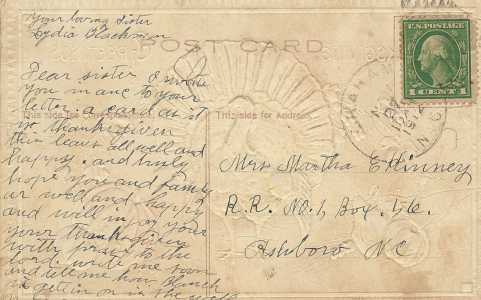 your loving Sister
Lydia
POST CARD
Dear sister I wrote
you in ans to your
letter. a card as it
is thanksgiven
This side for Correspondence
this leavs all well and
happy. and truly
hope you and family
ar well and happy
and will injoy your
your thanksgiven
with prays to the
Lord. write me soon
and tell me how
is get in on in the
This side for Address
Mrs Martha E
R.R. No. 1, Box. 56.
Ashboro NC
U.S. POSTAGE
1 CENT 1
N.C.